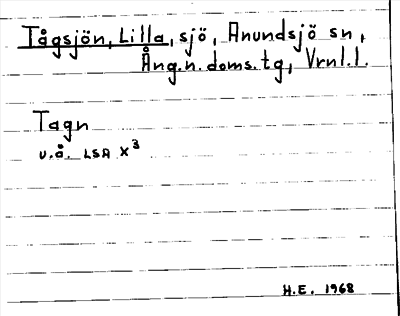 Tågsjön, Lilla, sjö, Anundsjö sn,
Ång.n.doms.tg, Vrnl.l.
Tagn
u.å. LSA X³
H.E. 1968